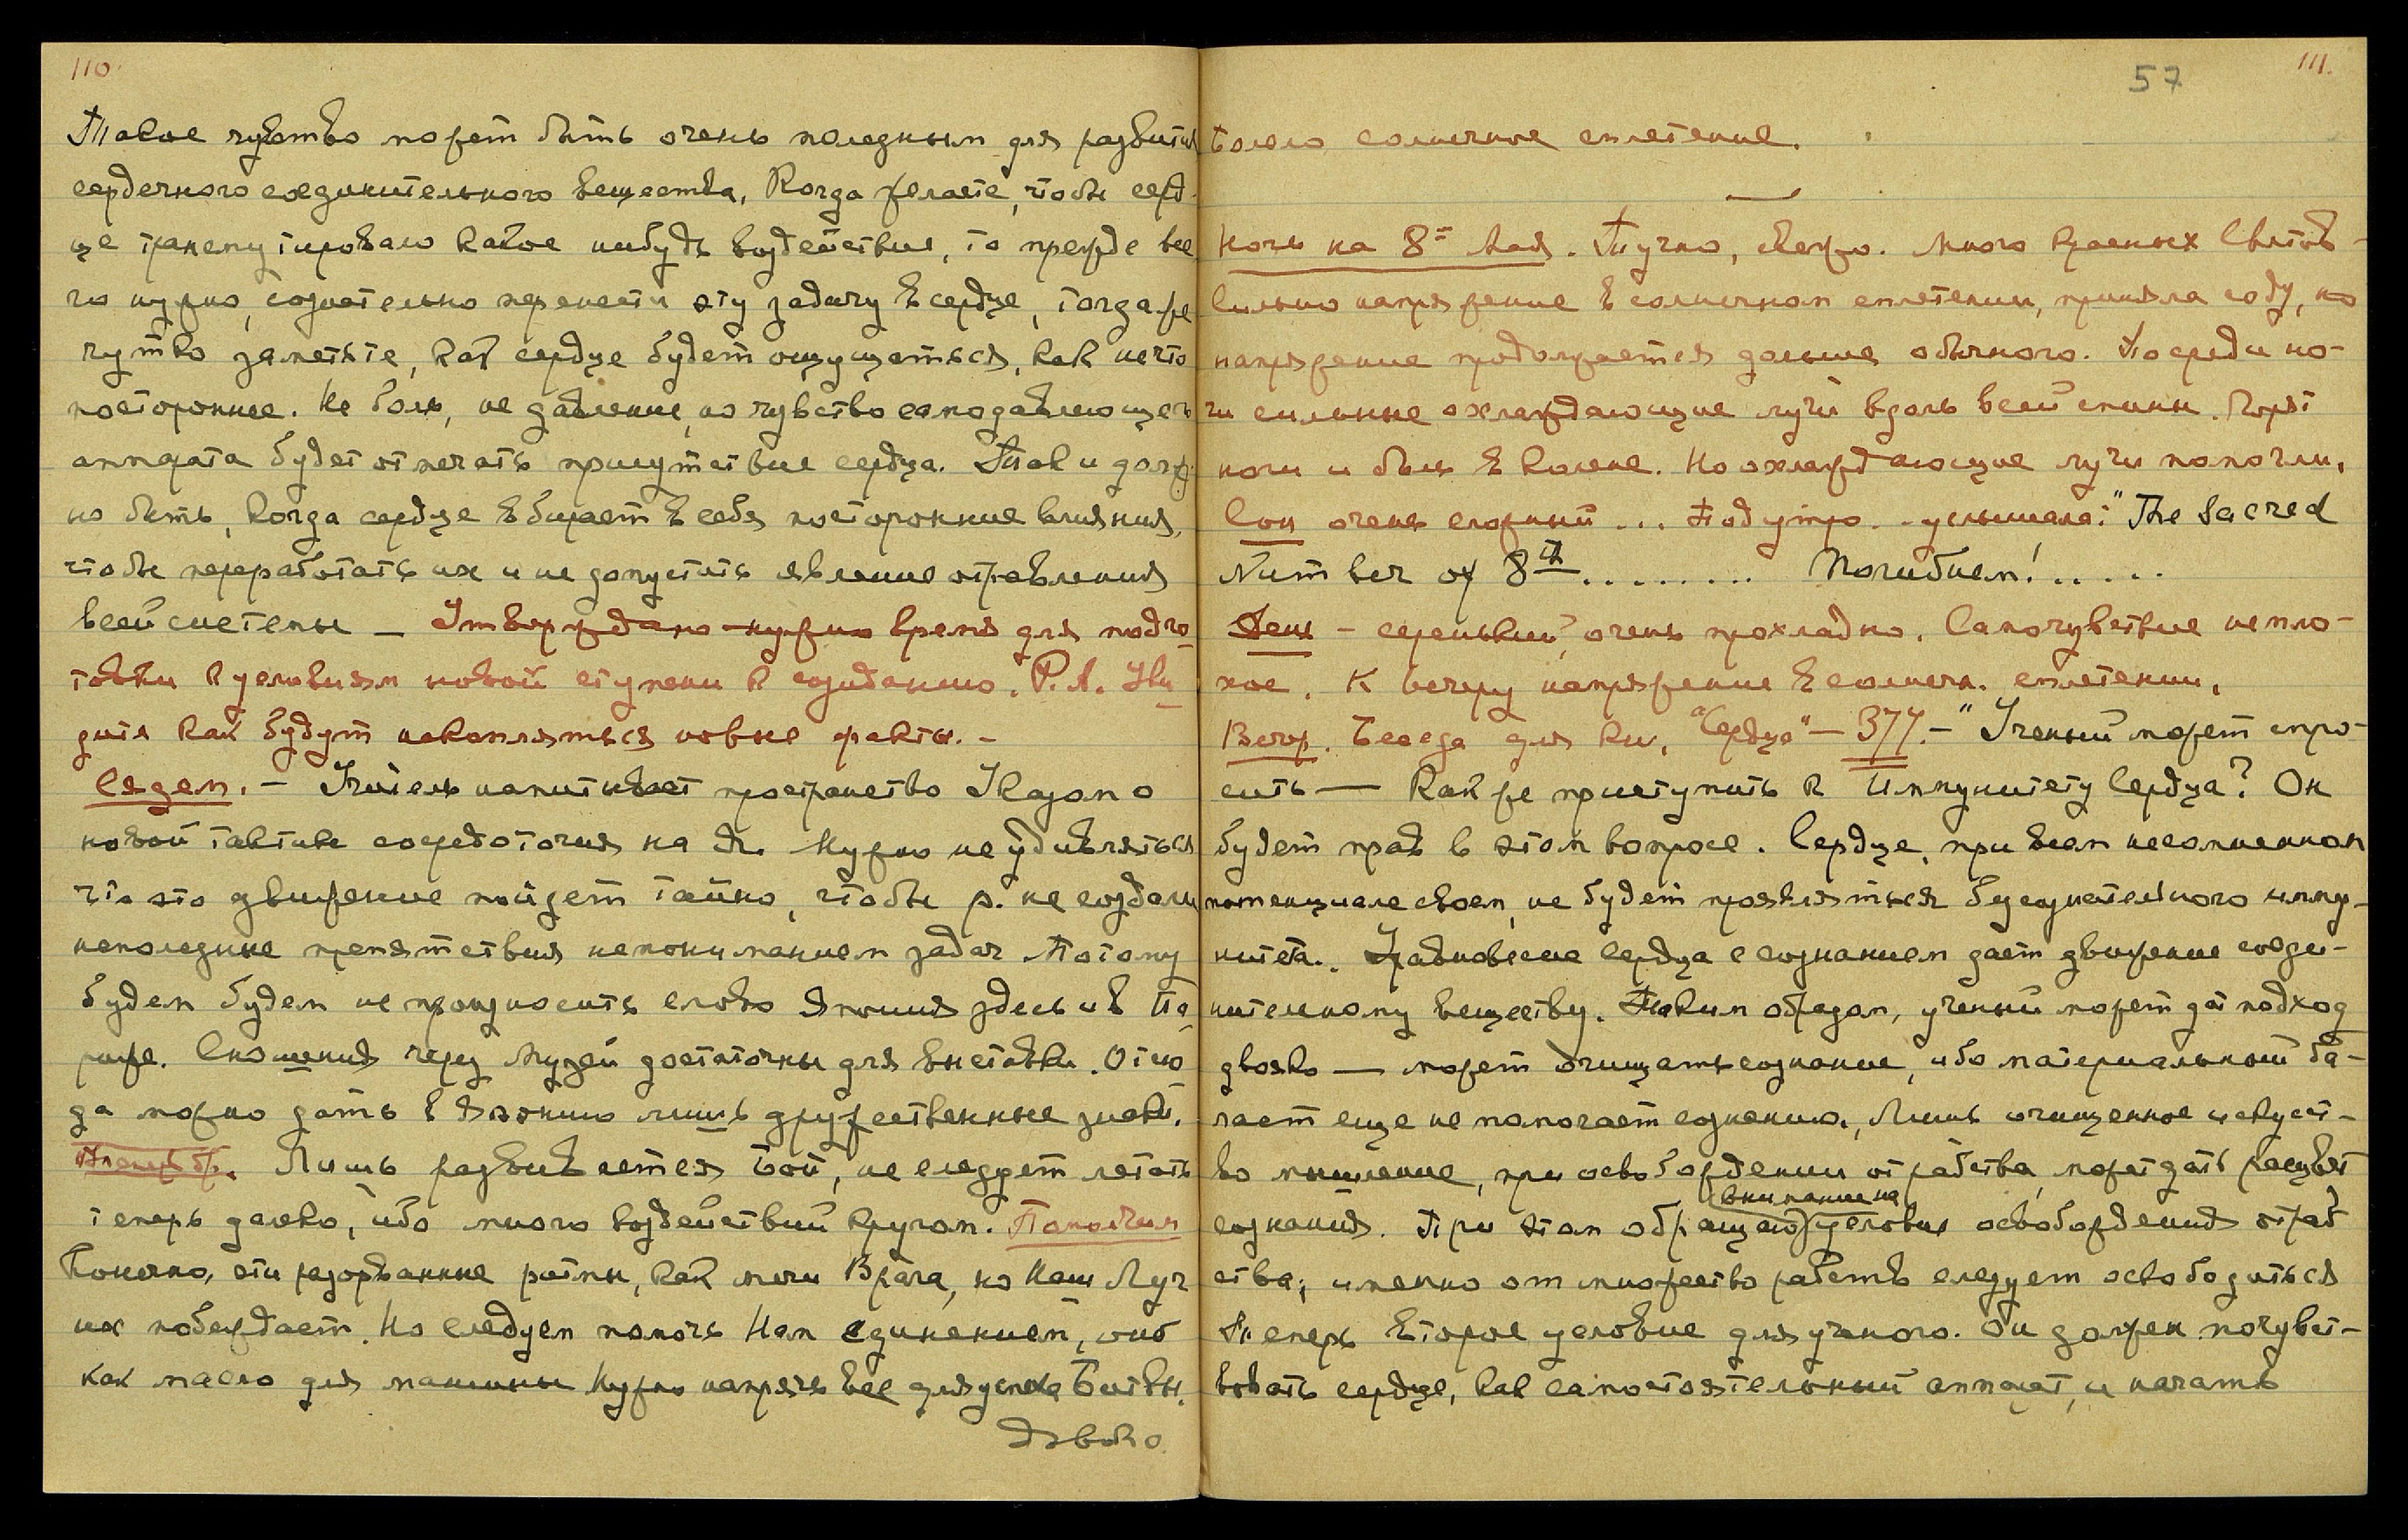 110.
Такое чувство может быть очень полезным для развития
сердечного соединительного вещества, Когда желаете, чтобы серд-
це трансмутировало какое нибудь воздействие, то прежде все
го нужно, сознательно перенести эту задачу в сердце, тогда же
чутко заметьте, как сердце будет ощущаться, как нечто
постороннее. Не боль, не давление, но чувство самодавлеющего
аппарата будет отмечать присутствие сердца. Так и долж-
но быть, когда сердце вбирает в себя посторонние влияния,
чтобы переработать их и не допустить явление отравления
всей системы — Утверждаю нужно время для подго
товки к условиям новой ступени к созиданию. Р.А.
дите как будут накопляться новые факты. –
Сядем. – Учитель напитывает пространство Указом о
новой тактике сосредоточия на Нужно не удивляться
что это движение пойдет тайно, чтобы р. не создали
неполезные препятствия непониманием задач. Потому
будем будем не произносить слово Япония здесь и в Па
риже. Сношения через Музей достаточны для выставки. Отсю
да можно дать в Японию лишь дружественные знаки.
Лишь развивается Бой, не следует летать
теперь далеко, ибо много воздействий кругом. Помолчим
Конечно, эти разорванные ритмы, как мечи Врага, но Наш Луч
их побеждает. Но следуем помочь Нам единением, оно
как масло для машины Нужно напрячь все для успеха Битвы.
Довольно.
57
111.
Болело солнечное сплетение.
Ночь на 8ое Мая. Тучно, свежо. Много красных Светов –
Сильно напряжение в солнечном сплетении, приняла соду, но
напряжение продолжается дольше обычного. Посреди но-
чи сильные охлаждающие лучи вдоль всей спины. Горят
ноги и боль в колене. Но охлаждающие лучи помогли,
Сон очень сложный ... Под утро .. услышала: "The Sacred
Number of 8th ......... Погибнем! .....
День – серенький, очень прохладно. Самочувствие непло-
хое. К вечеру напряжение в солнечн. сплетении.
Вечер. Беседа для кн. "Сердце" — 377. – "Ученый может спро-
сить — Как же приступить к Иммунитету Сердца? Он
будет прав в этом вопросе. Сердце, при всем несомненном
потенциале своем, не будет проявляться без сознательного имму-
нитета. Равновесие Сердца с сознанием дает движение соеди-
нительному веществу. Таким образом, ученый может дат подход
двояко — может очищать сознание, ибо материальный ба-
ласт еще не помогает сознанию., Лишь очищенное искусст-
во мышление, при освобождении от рабства, может дать расцвет
сознания. При этом обращаю внимание на условия освобождения отраб
ства; именно от множество рабств следует освободиться
Теперь второе условие для ученого. Он должен почувст-
вовать сердце, как самостоятельный аппарат, и начать